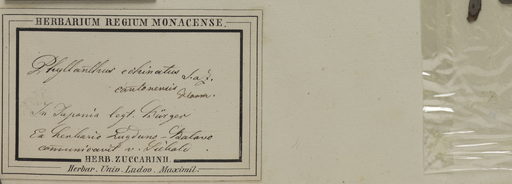 HERBARIUM REGIUM MONACENSE.
Phyllanthus echinatus
cantonensis Horn.
In Japonia legt. Bürger
Ex herbario Lugduno-Batavo
communicavit v. Siebold.
HERB. ZUCCARINII.
Herbar. Univ. Ludov. Maximil.